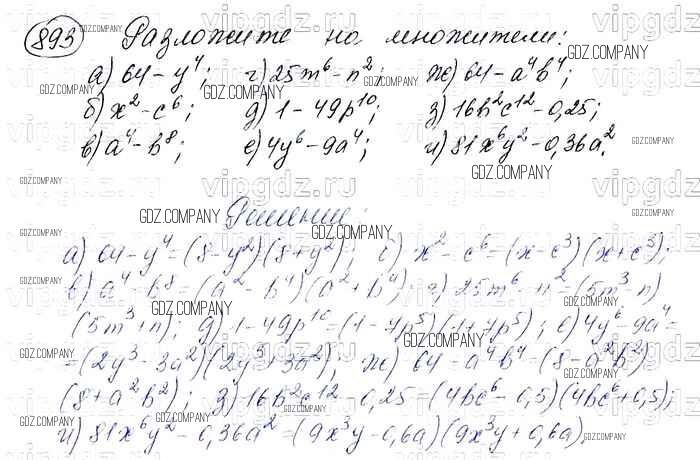 893 Разложите на множители:
а) 64 - y⁴; г) 25m⁶ - n²; ж) 64 - a⁴b⁴;
б) x² - c⁶; д) 1 - 49p¹⁰; з) 16b²c¹² - 0,25;
в) a⁴ - b⁸; е) 4y⁶ - 9a⁴; и) 81x⁶y² - 0,36a².
Решение:
а) 64 - y⁴ = (8 - y²)(8 + y²); б) x² - c⁶ = (x - c³)(x + c³);
в) a⁴ - b⁸ = (a² - b⁴)(a² + b⁴); г) 25m⁶ - n² = (5m³ - n)
(5m³ + n); д) 1 - 49p¹⁰ = (1 - 7p⁵)(1 + 7p⁵); е) 4y⁶ - 9a⁴ =
= (2y³ - 3a²)(2y³ + 3a²); ж) 64 - a⁴b⁴ = (8 - a²b²)
(8 + a²b²); з) 16b²c¹² - 0,25 = (4bc⁶ - 0,5)(4bc⁶ + 0,5);
и) 81x⁶y² - 0,36a² = (9x³y - 0,6a)(9x³y + 0,6a).
vipgdz.ru
GDZ.COMPANY